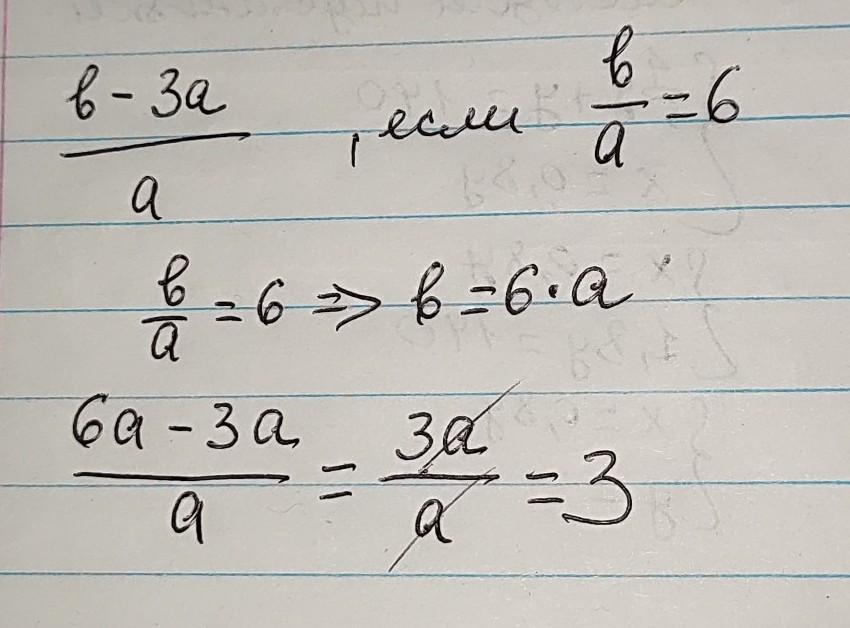 (b - 3a)/a , если b/a = 6
b/a = 6 => b = 6 · a
(6a - 3a)/a = 3a/a = 3